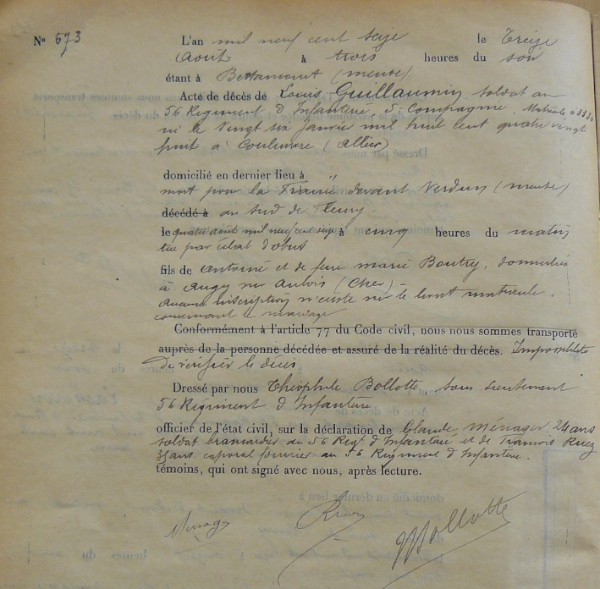 N° 673
L'an mil neuf cent seize le Treize
Août à trois heures du soir
étant à (meuse)
Acte de décès de Louis Guillaumin soldat au
56 Régiment d'Infanterie, 5e Compagnie, Matricule
né le Vingt six Janvier mil huit cent quatre vingt
huit à Couleuvre (Allier)
domicilié en dernier lieu à
mort pour la France devant Verdun (meuse)
décédé à au sud de Fleury
le quatre août mil neuf cent seize à cinq heures du matin
tué par éclat d'obus
fils de Antoine et de feue marie Boutry, domiciliés
à Augy sur Aubois (Cher) —
aucune inscription n'existe sur le livret matricule
concernant le mariage
Conformément à l'article 77 du Code civil, nous nous sommes transporté
auprès de la personne décédée et assuré de la réalité du décès. Impossibilité
de vérifier le décès
Dressé par nous Théophile Bollotte sous lieutenant
56 Régiment d'Infanterie
officier de l'état civil, sur la déclaration de Claude Ménager, 24 ans
soldat brancardier au 56 Regt d'Infanterie et de François
ans caporal fourrier au 56 Régiment d'Infanterie.
témoins, qui ont signé avec nous, après lecture.
Menager Bollotte